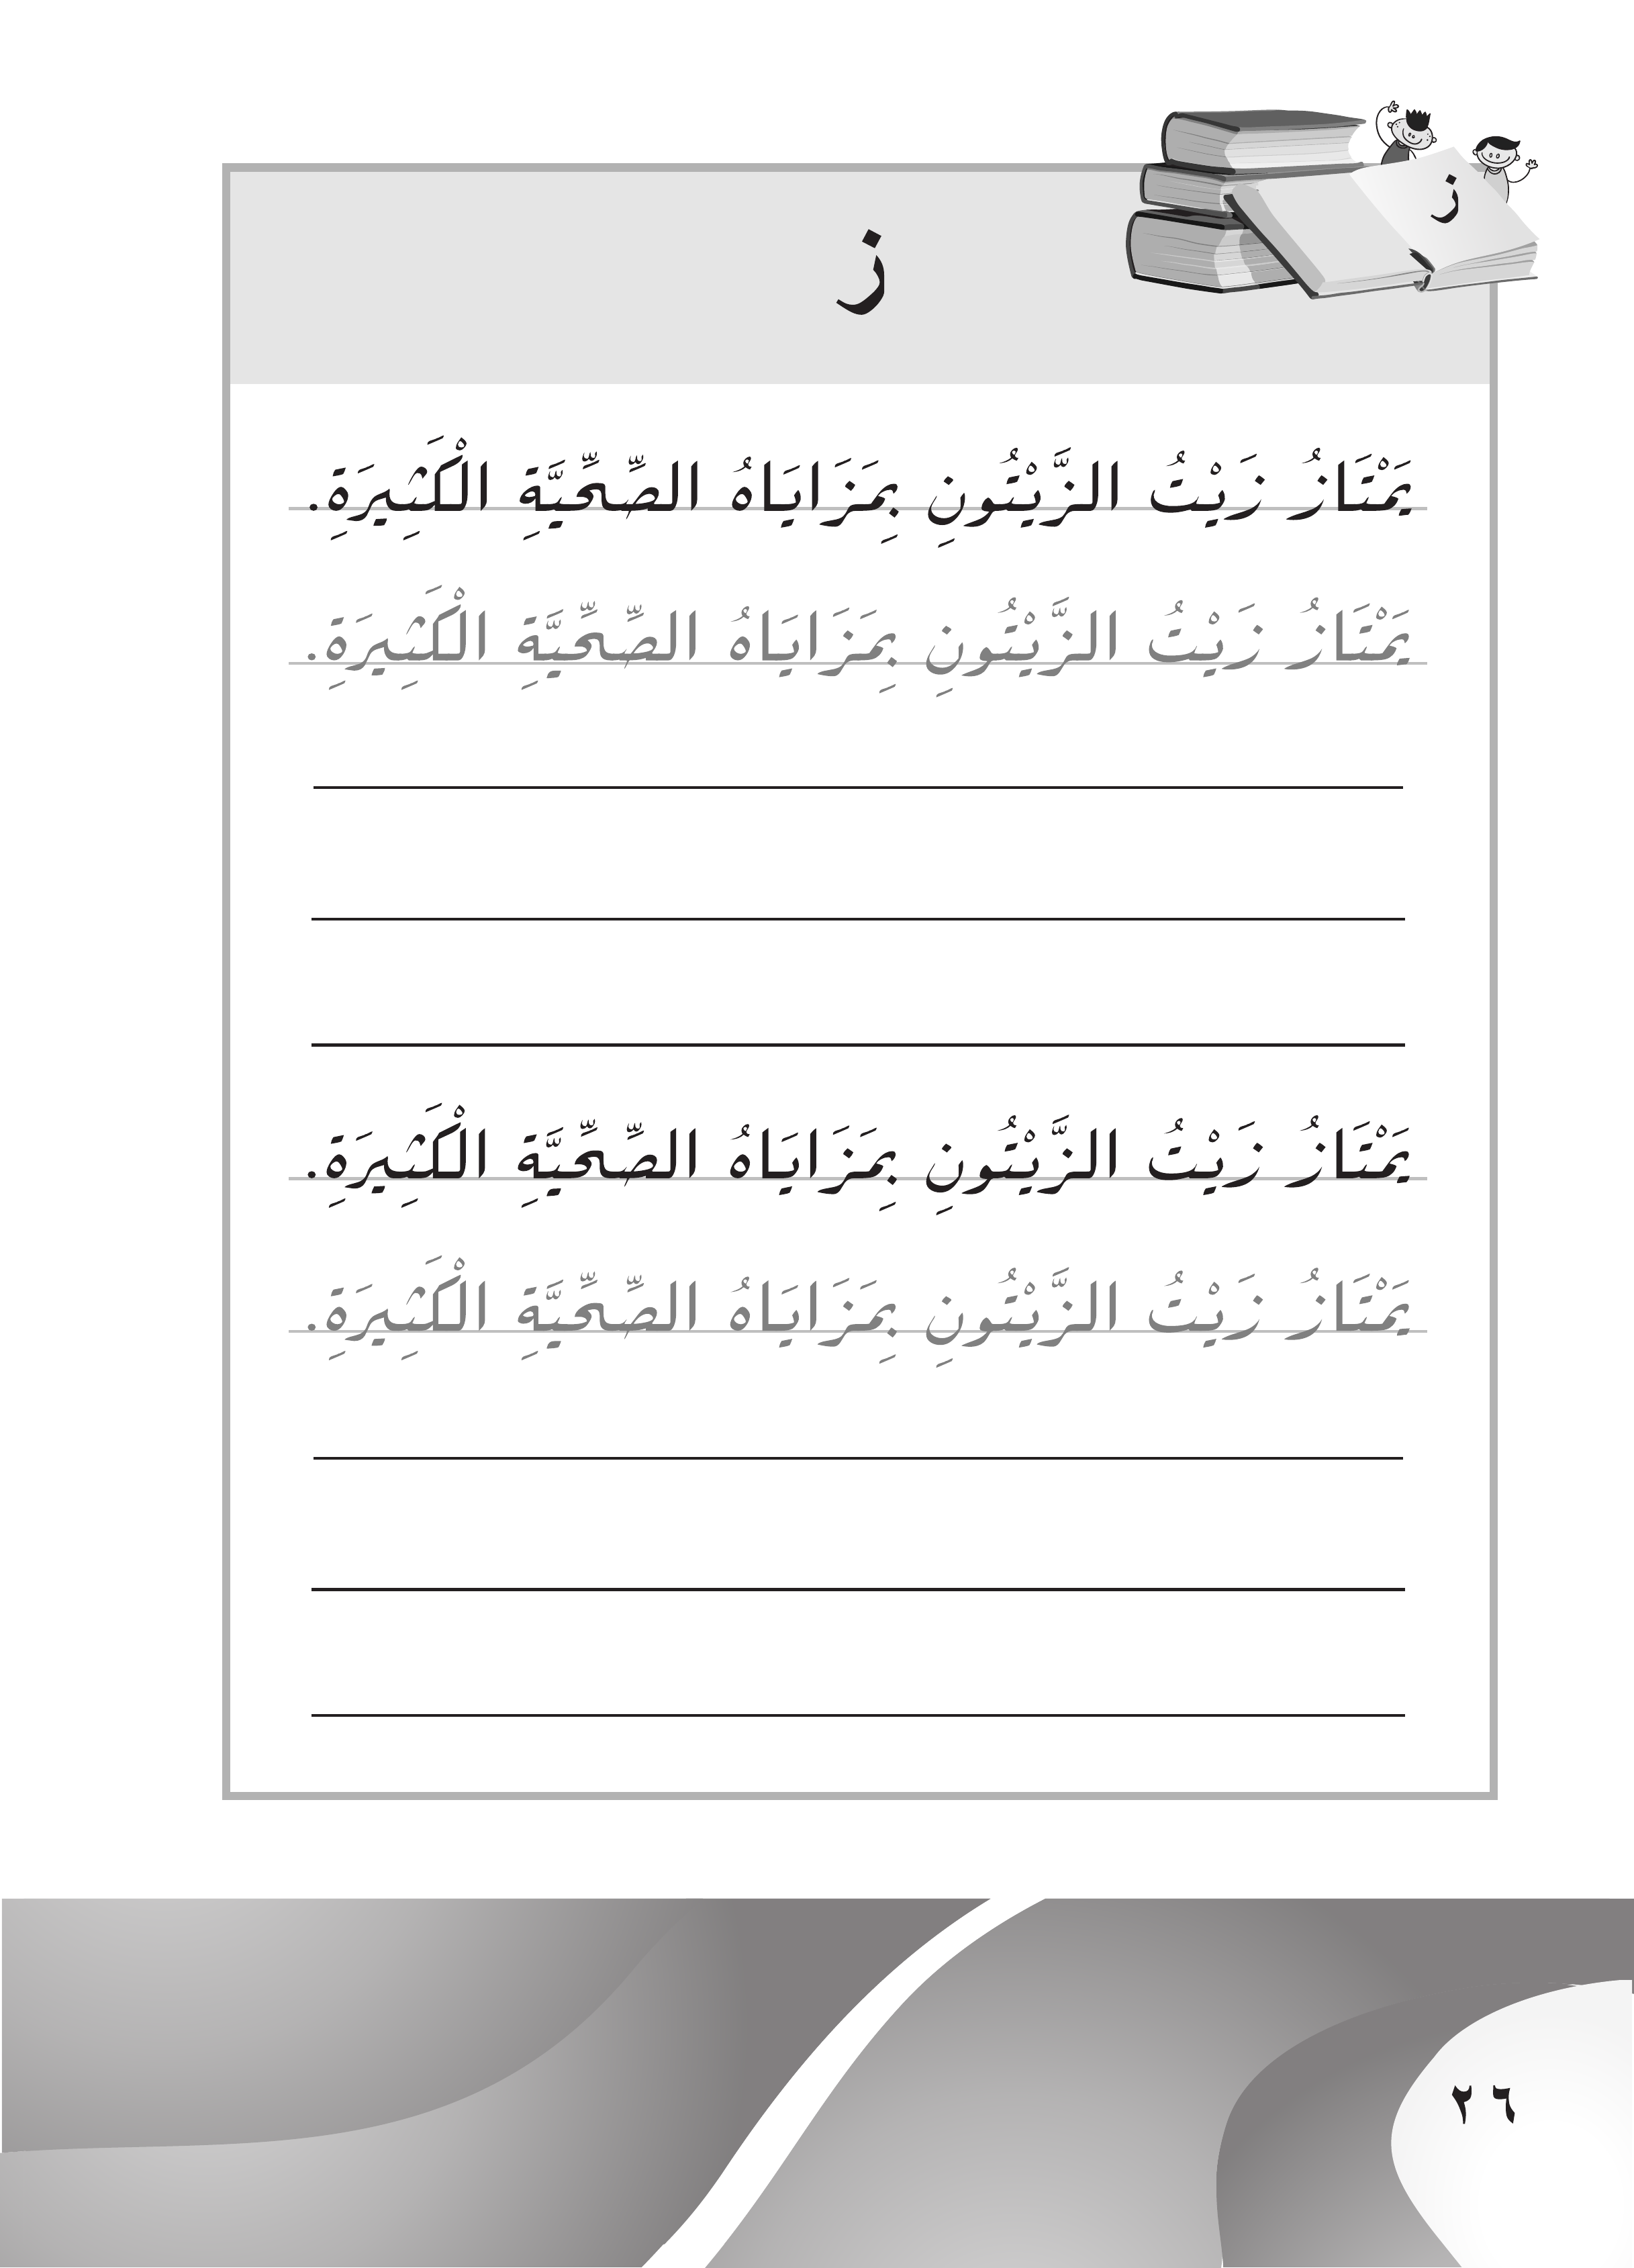 ز
ز
يَمْتَازُ زَيْتُ الزَّيْتُونِ بِمَزَايَاهُ الصِّحِّيَّةِ الْكَثِيرَةِ.
يَمْتَازُ زَيْتُ الزَّيْتُونِ بِمَزَايَاهُ الصِّحِّيَّةِ الْكَثِيرَةِ.
يَمْتَازُ زَيْتُ الزَّيْتُونِ بِمَزَايَاهُ الصِّحِّيَّةِ الْكَثِيرَةِ.
يَمْتَازُ زَيْتُ الزَّيْتُونِ بِمَزَايَاهُ الصِّحِّيَّةِ الْكَثِيرَةِ.
٢٦